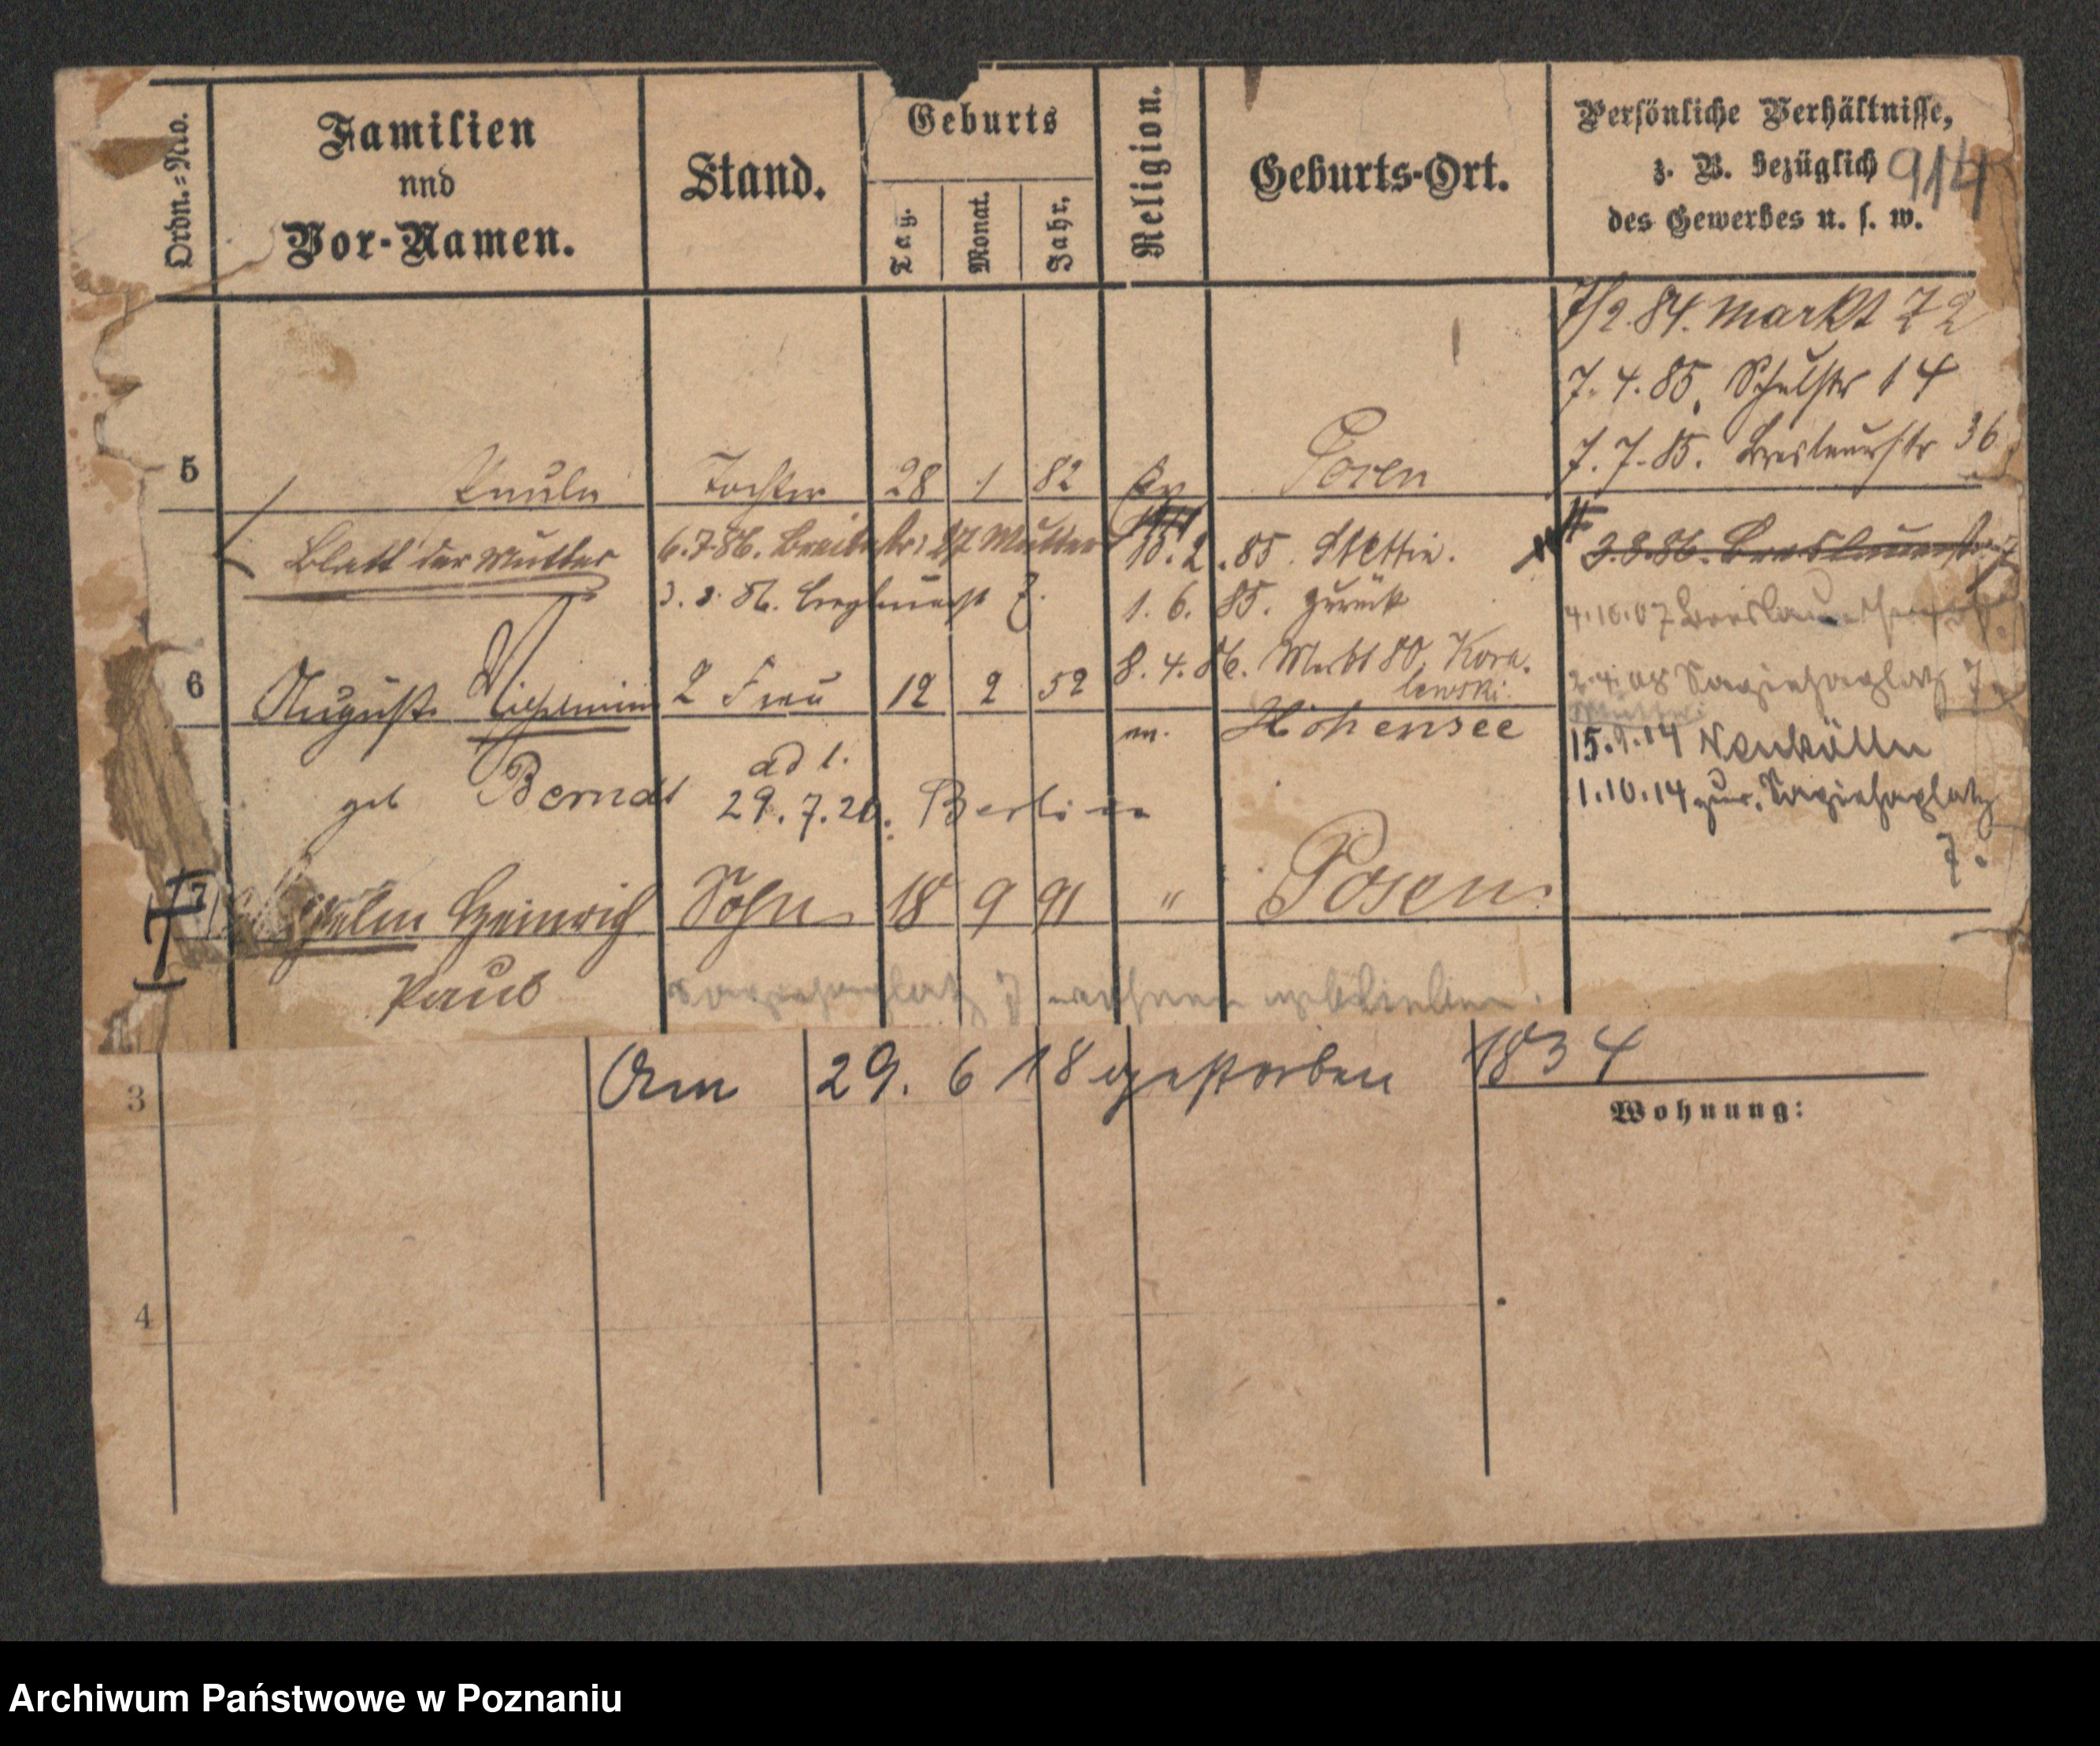 Ordn.=No.
Familien
und
Vor-Namen.
Stand.
Geburts
Tag.
Monat.
Jahr.
Religion.
Geburts-Ort.
Persönliche Verhältnisse,
z. B. bezüglich
des Gewerbes u. s. w.
914
7/2.84. Markt 72
7.4.85. Schulstr 14
7.7.85. Breslauerstr 36
5 Paula Tochter 28 1 82 Ev Posen
Blatt der Mutter
6.7.86. Breitestr: 27 Mutter
3.8.86.
10.2.85. Stettin.
1.6.85. zurück
8.4.86. Markt 80, Kora-
lewski.
3.8.86. Breslauerstr
4.10.07 Breslauerstr
Sapiehaplatz 7
Mutter
6 August. Wilhelmine 2 Frau 12 2 52 ev. Hohensee
geb Berndt
ad 1.
29.7.20. Berlin
15.9.14 Neukölln
1.10.14 zur. Sapiehaplatz
7.
7 Wilhelm Heinrich Sohn 18 9 91 " Posen
Paul
Sapiehaplatz 7 wohnen geblieben.
Am 29. 6 18 gestorben 1834
3
Wohnung:
4
Archiwum Państwowe w Poznaniu